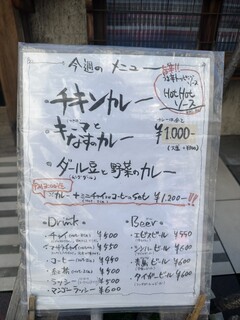 今週の メニュー
Hot Hot
ソース
チキンカレー
キーマと
なすのカレー
¥1,000-
ダール豆と野菜のカレー
カレー + ミニチャイ or コーヒー set ¥1,200-!!
・Drink・
チャイ ¥500
¥500
コーヒー ¥450
紅茶 ¥500
ラッシー ¥500
マンゴーラッシー ¥600
・Beer・
エビスビール ¥550
シンハービール ¥600
青島ビール ¥600
タイガービール ¥600